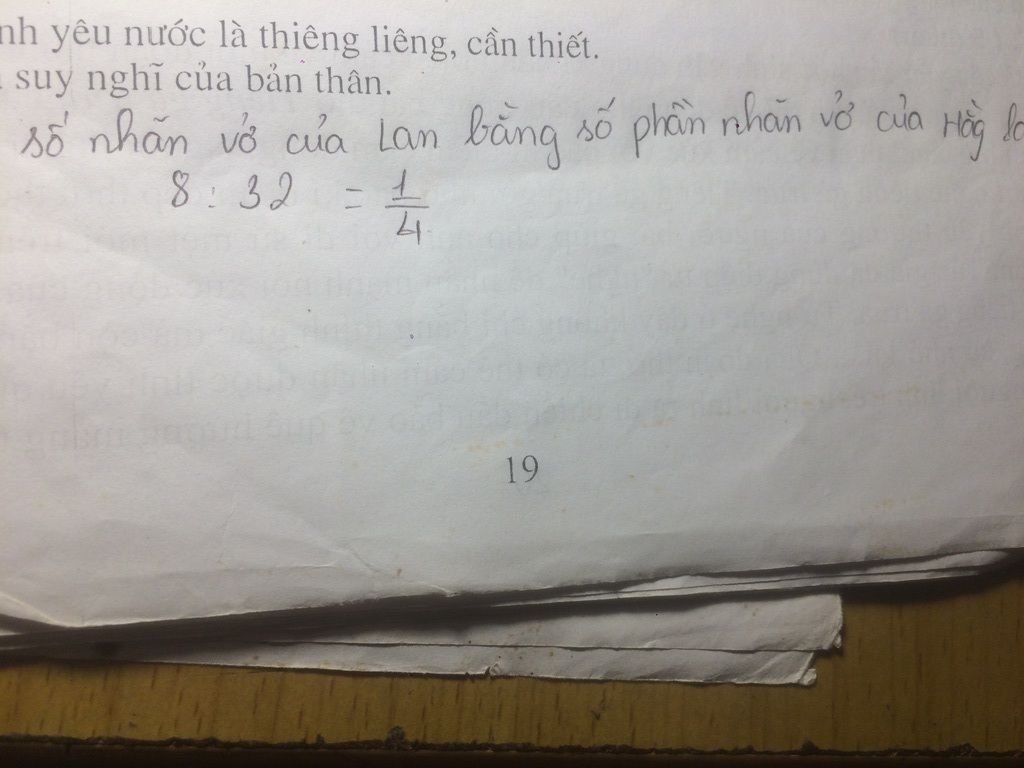 nh yêu nước là thiêng liêng, cần thiết.
suy nghĩ của bản thân.
số nhãn vở của Lan bằng số phần nhãn vở của Hồg
8 : 32 = 1/4
19